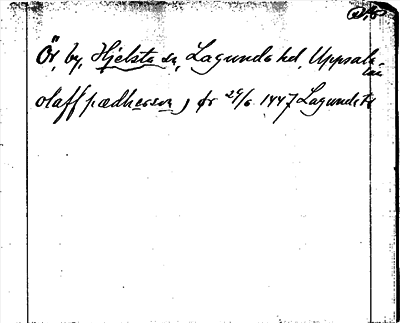 Ör, by, Hjelsta sn, Lagunda hd, Uppsala
län
olaff pædhersson, 29/6 1447 Lagunda